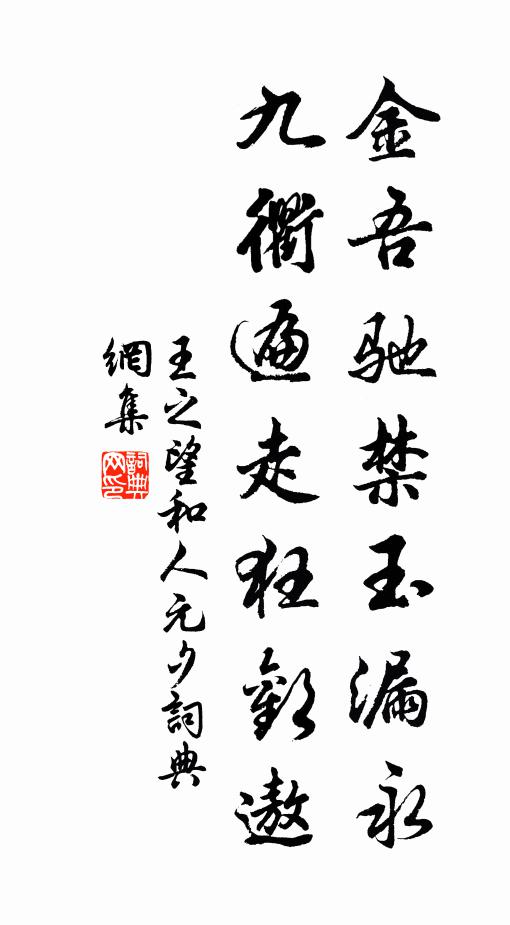 金吾驰禁玉漏永
九衢遍走狂歡遨
王之望和人元夕詞典
網集
詞典網印